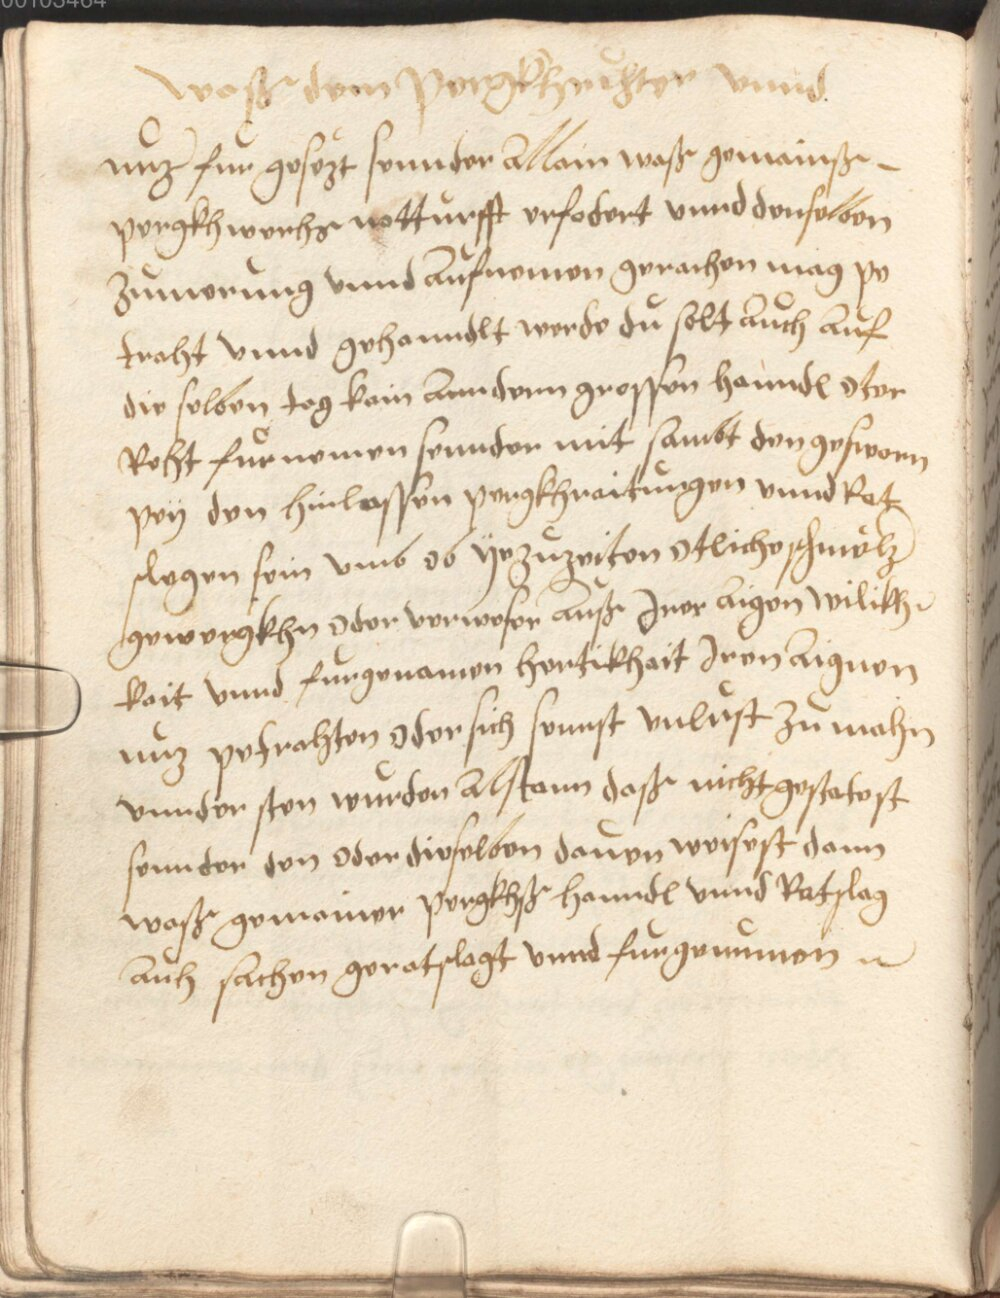 00105464
waß dem Pergkhrichter vnnd
nuz fur gesezt sonnder Allain waß gemainß
pergkhwerchs notturfft erfodert vnnd denselben
Zumerung vnnd Aufnemen geraichen mag pe
traht vnnd gehanndlt werde du solt Auch Auf
die selben tag kain Anndern grossen hanndl oter
Reht furnemen sonnder mit sambt den gesworn
pey den hinlassen pergkhraitungen vnnd Rat
slegen sein vmb ob yezuzeiten Etliche schmelz
gewergkhn oder verweser Auß Irer Aigen wilikh
kait vnnd furgenamen hertikhait Iren Aignen
nuz petrahten oder sich sonnst vnlust zu mahn
vnnder sten wurden Alßtann daß nicht gestatest
sonnder den oder dieselben dauon weisest dann
waß gemainer Pergkhß hanndl vnnd Ratslag
auh sachen geratslagt vnnd furgenumen